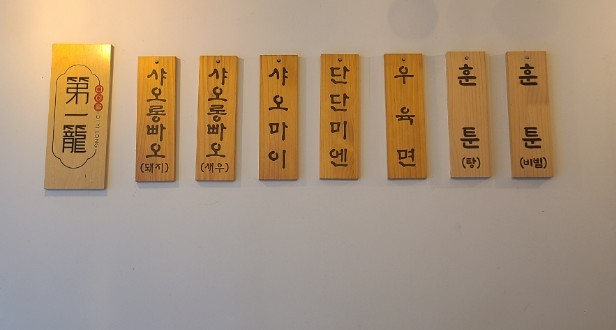 第一籠
샤오롱빠오
(돼지)
샤오롱빠오
(새우)
샤오마이
단단미엔
우육면
훈툰
(탕)
훈툰
(비빔)